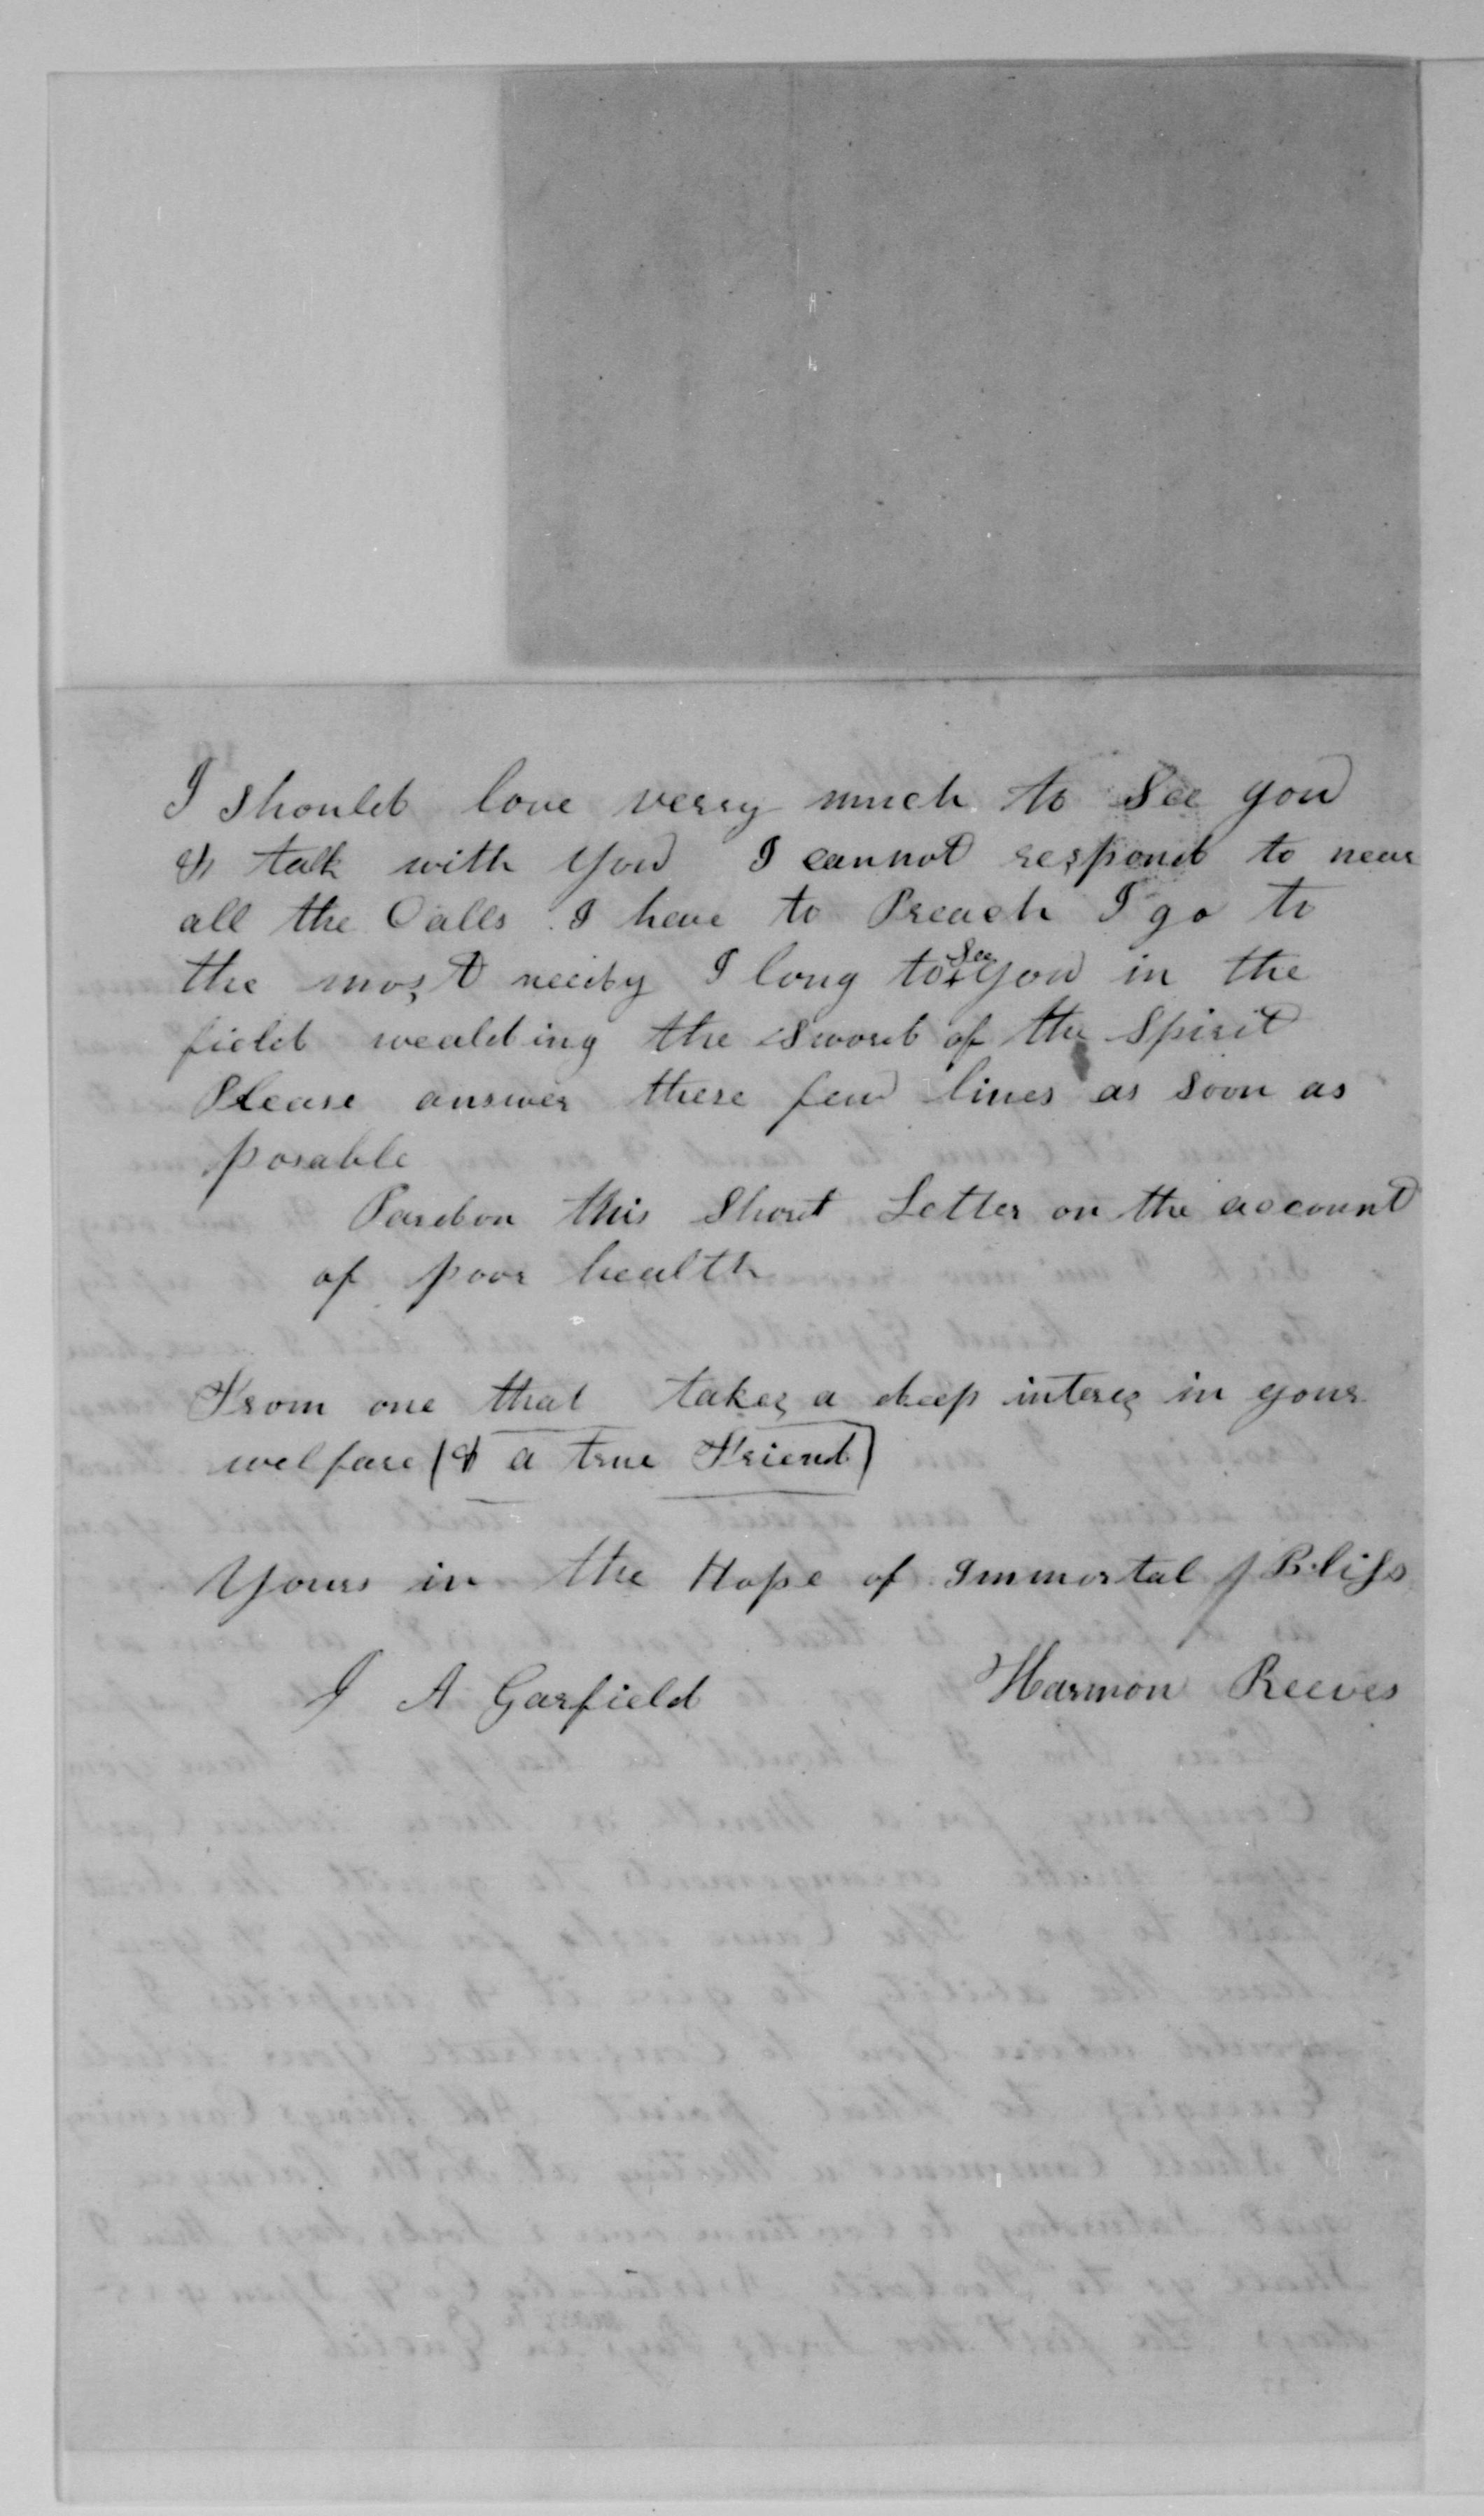 I should love verry much to See you
& talk with you I cannot respond to near
all the Calls I have to Preach I go to
the most needy I long to See you in the
field wealding the sword of the Spirit
Please answer these few lines as soon as
posable
Pardon this Short Letter on the account
of poor health
From one that takes a deep interes in your
welfare (& a true Friend)
Yours in the Hope of Immortal Bliss
J A Garfield Harmon Reeves